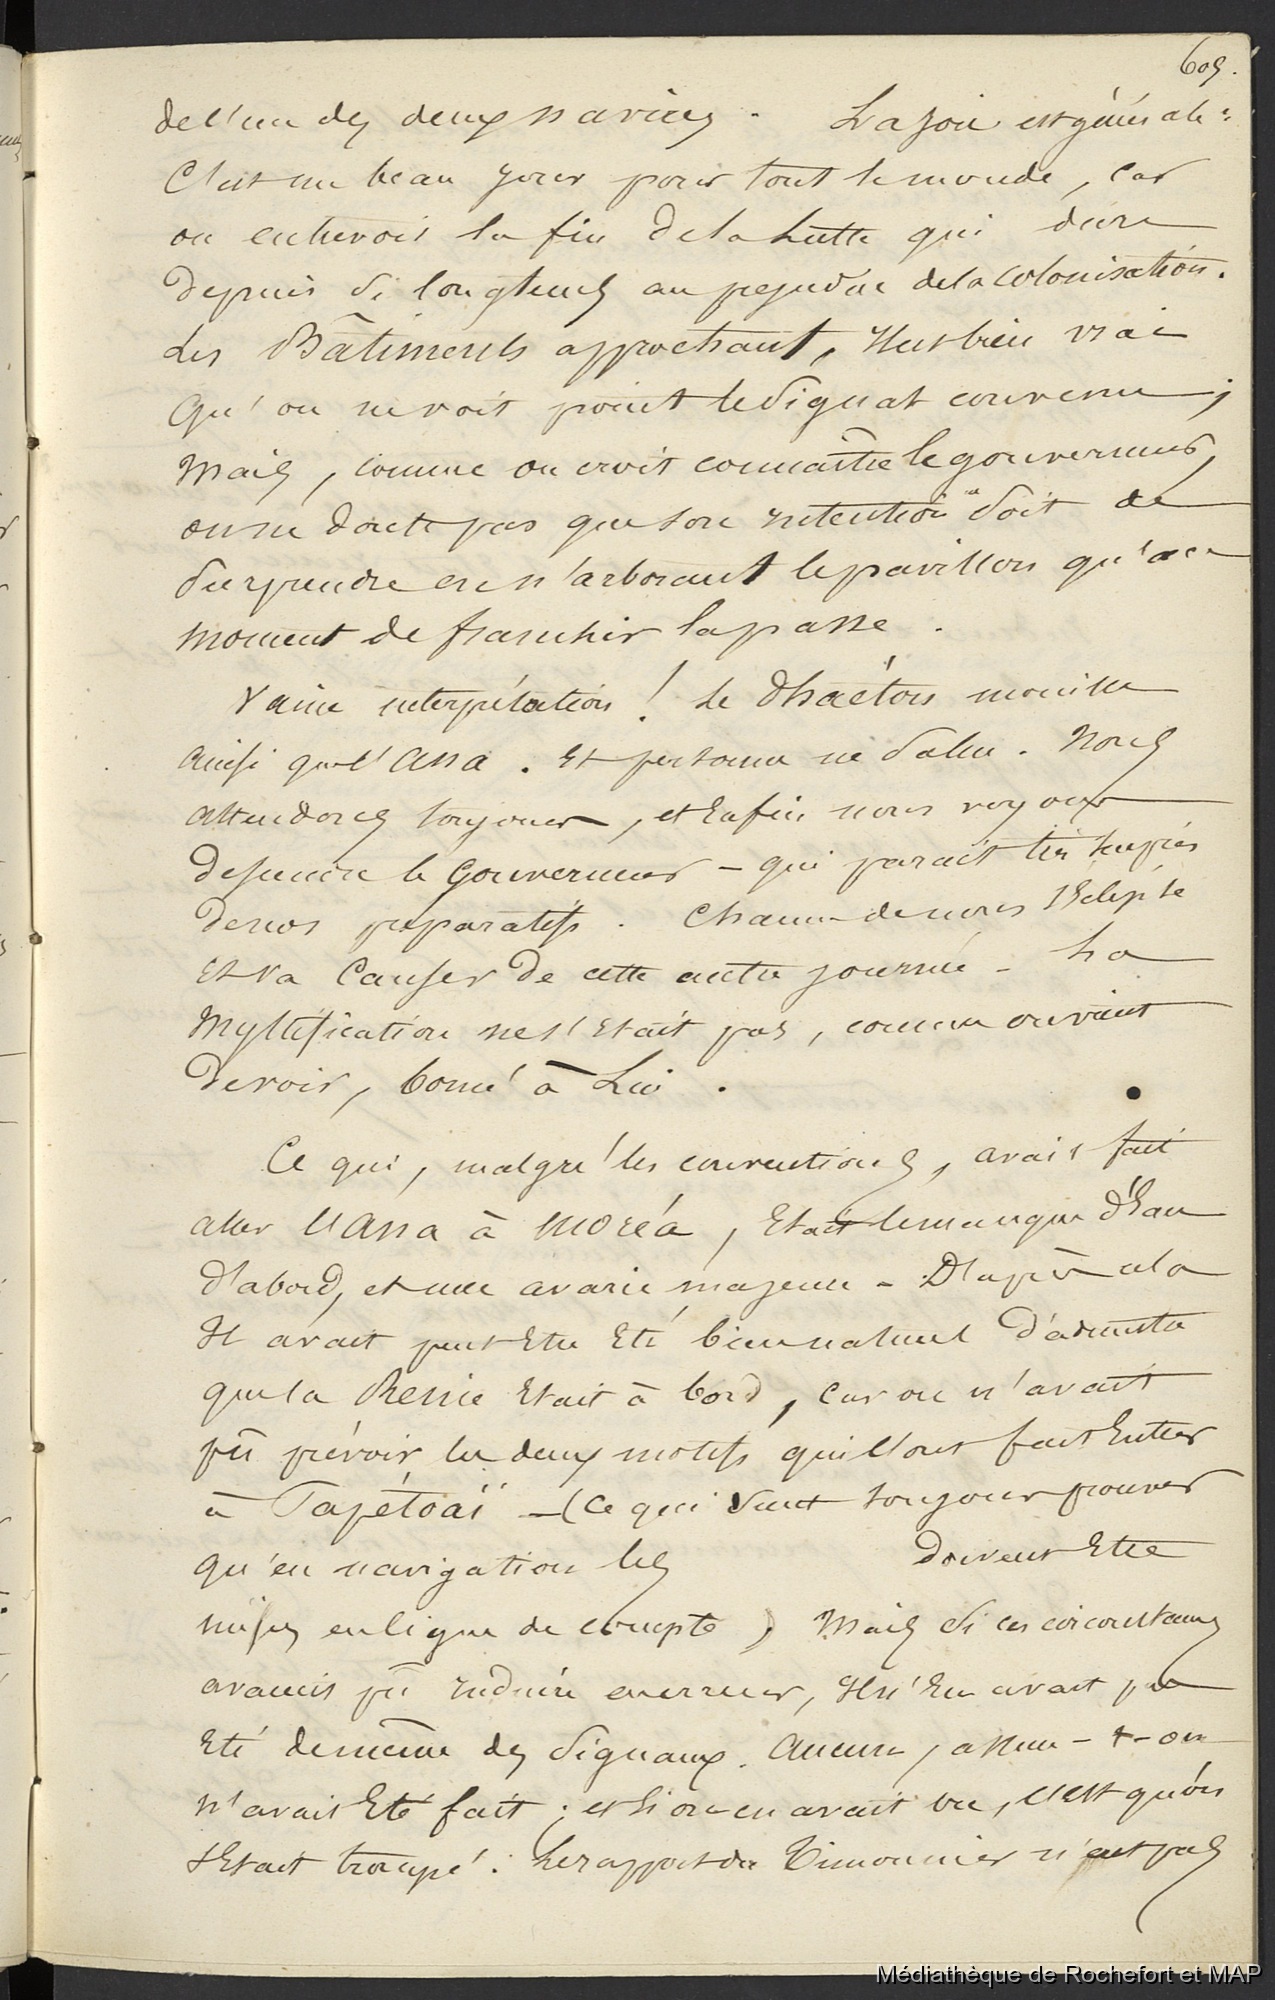 609.
de l'un des deux navires. La joie est générale:
C'est un beau jour pour tout le monde, car
on entrevoit la fin de la lutte qui dure
depuis si longtems au préjudice de la colonisation.
Les Bâtiments approchant, Il est bien vrai
Qu'on ne voit point le signal convenu;
Mais, comme on croit connaître le gouverneur,
on ne doute pas que son intention ne soit de
surprendre en n'arborant le pavillon qu'au
moment de franchir la passe.
Vaine interprétation! Le Phaéton mouille
ainsi que l'Ana. Et personne ne salue. Nous
attendons toujours, et Enfin nous voyons
descendre le Gouverneur - qui parait très surpris
de nos préparatifs. Chacun de nous s'Eclipse
Et va Causer de cette autre journée - La
Mystification ne s'était pas, comme on vient
de voir, borné à Lui.
Ce qui, malgré les conventions, avait fait
aller l'Ana à Moréa, Etait le manque d'Eau
d'abord, et une avarie majeure - D'après cela
Il avait peut Etre Eté bien naturel d'admettre
que la Reine Etait à bord, car on n'avait
pû prévoir les deux motifs qui l'ont fait Entrer
à Papétoaï - (Ce qui vient toujours prouver
qu'en navigation les doivent Etre
mises en ligne de compte) Mais si ces circonstances
avaient pû induire en erreur, Il n'En avait pas
Eté de même des signaux. Aucun, assure-t-on
n'avait Eté fait; et si on en avait vu, c'Est qu'on
s'Etait trompé. Le rapport du Timonnier n'est pas
Médiathèque de Rochefort et MAP